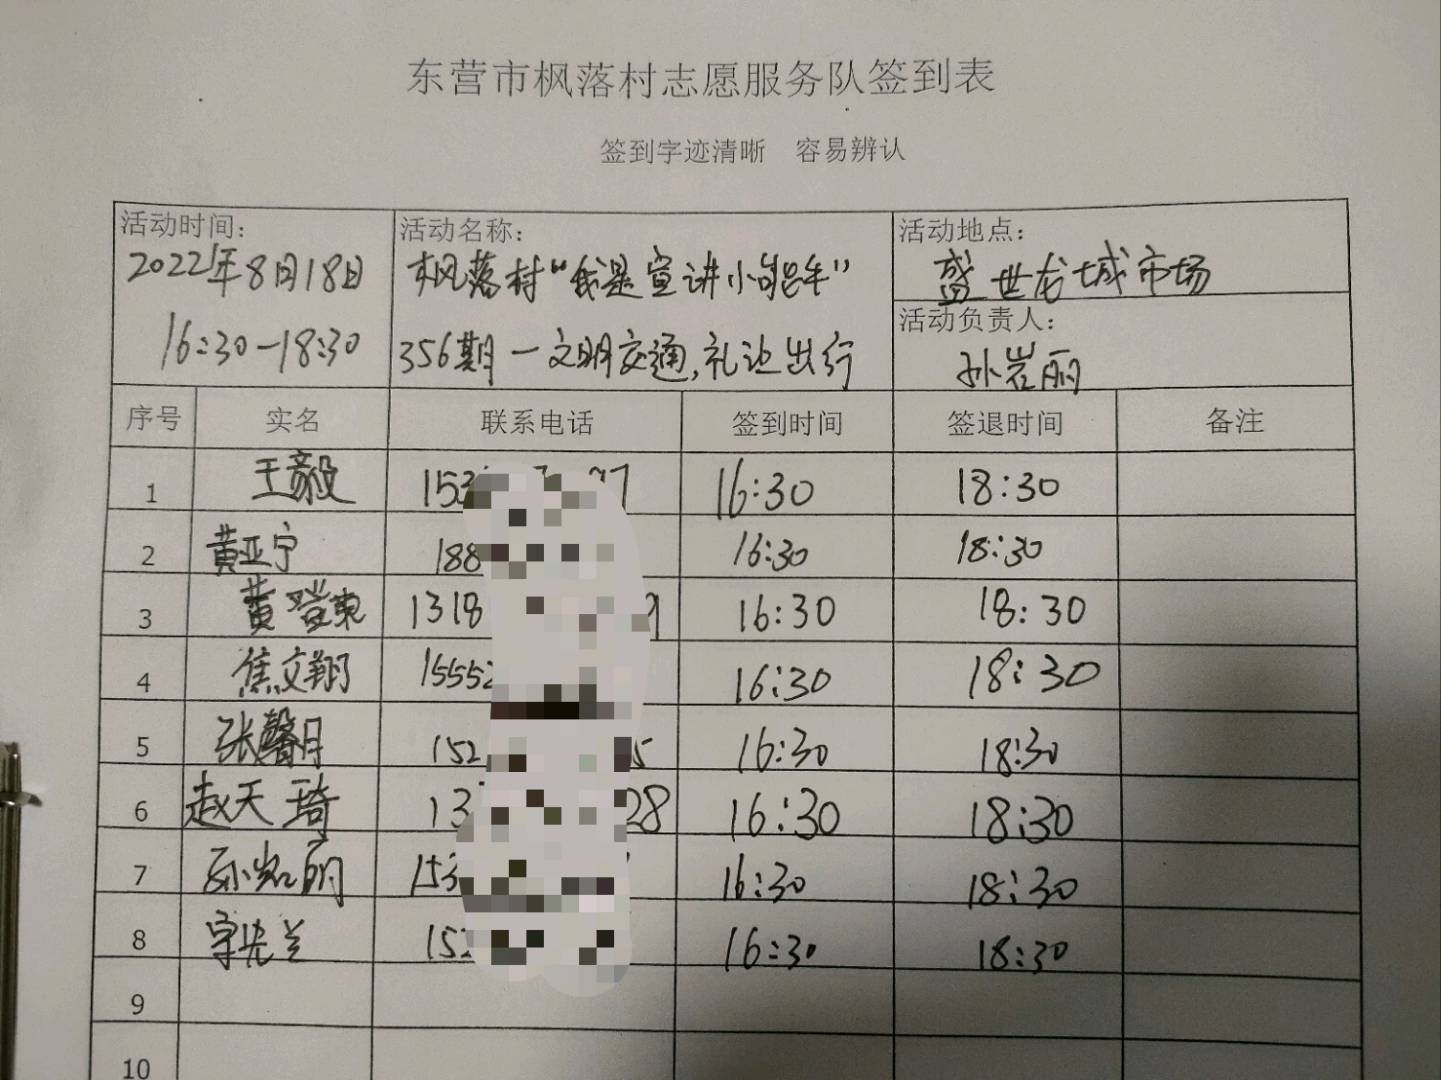 东营市枫落村志愿服务队签到表
签到字迹清晰 容易辨认
活动时间: 活动名称: 活动地点:
2022年8月18日 枫落村“我是宣讲小能手” 盛世龙城市场
活动负责人:
16:30-18:30 356期—文明交通,礼让出行 孙岩丽
序号 实名 联系电话 签到时间 签退时间 备注
1 王毅 153 77 16:30 18:30
2 黄亚宁 188 16:30 18:30
3 黄登东 1318 9 16:30 18:30
4 焦文翔 15552 16:30 18:30
5 张馨月 152 5 16:30 18:30
6 赵天琦 13 28 16:30 18:30
7 孙岩丽 153 16:30 18:30
8 先兰 152 16:30 18:30
9
10